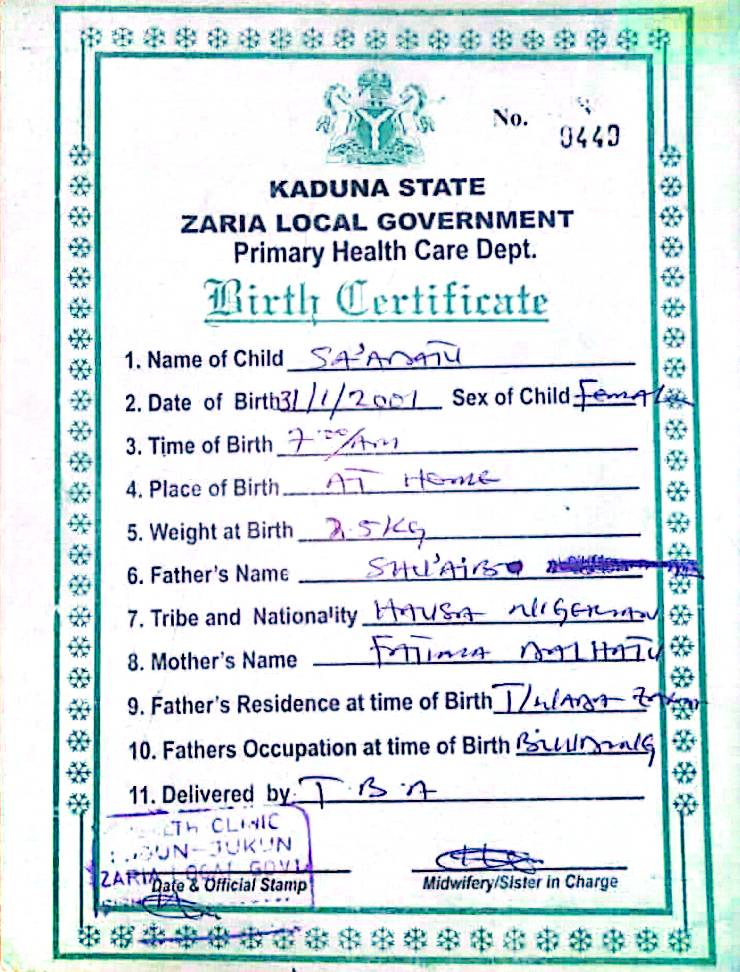 No. 0449
KADUNA STATE
ZARIA LOCAL GOVERNMENT
Primary Health Care Dept.
Birth Certificate
1. Name of Child SA'ADATU
2. Date of Birth 31/1/2001 Sex of Child Female
3. Time of Birth 7:00/AM
4. Place of Birth AT HOME
5. Weight at Birth 2.5KG
6. Father's Name SHU'AIBU
7. Tribe and Nationality HAUSA NIGERIAN
8. Mother's Name FATIMA DALHATU
9. Father's Residence at time of Birth T/WADA
10. Fathers Occupation at time of Birth
11. Delivered by T.B.A
CLINIC
JUKUN
ZARIA LOCAL GOVT
Date & Official Stamp Midwifery/Sister in Charge